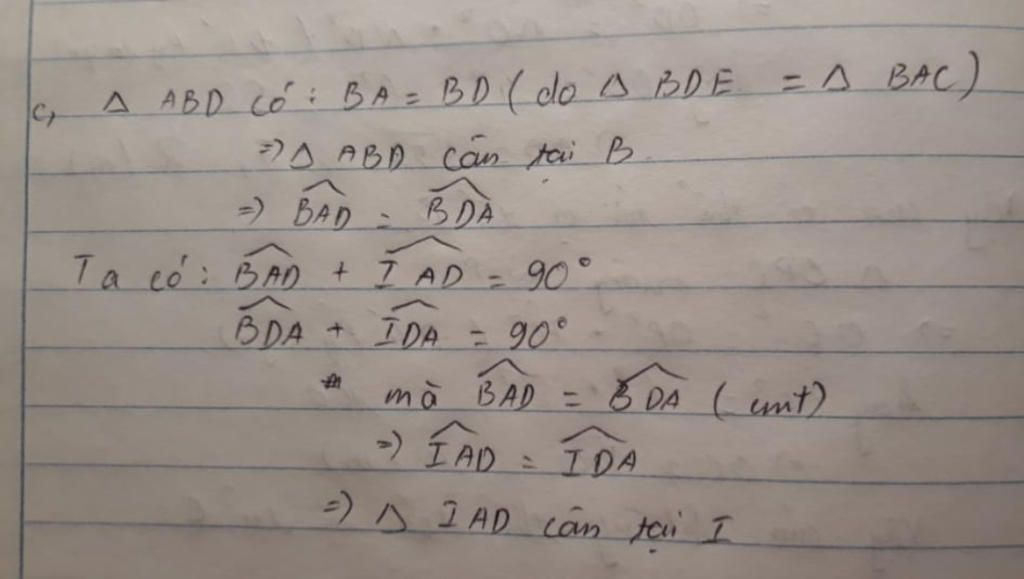 c, Δ ABD có : BA = BD ( do Δ BDE = Δ BAC )
=> Δ ABD cân tại B
=> \widehat{BAD} = \widehat{BDA}
Ta có : \widehat{BAD} + \widehat{IAD} = 90°
\widehat{BDA} + \widehat{IDA} = 90°
mà \widehat{BAD} = \widehat{BDA} ( cmt )
=> \widehat{IAD} = \widehat{IDA}
=> Δ IAD cân tại I